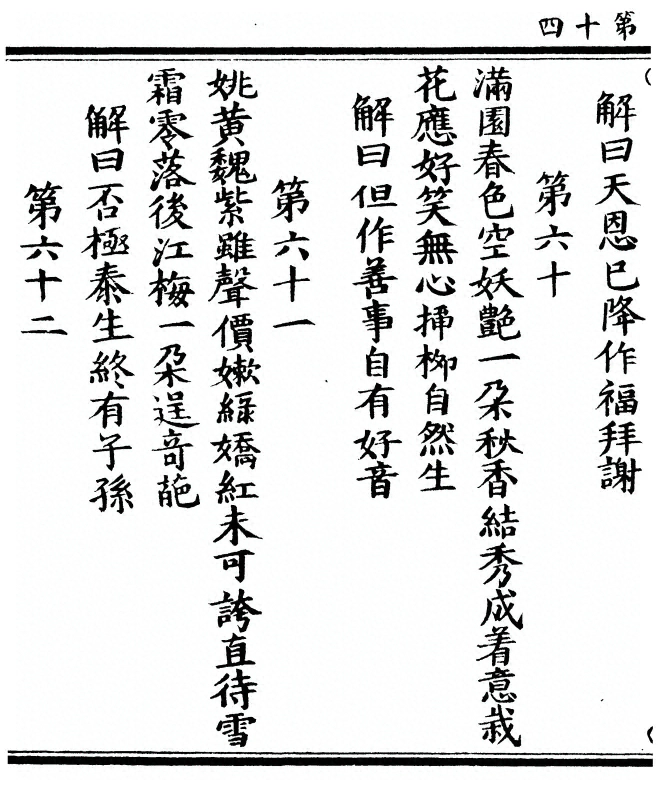 第十四
解曰天恩已降作福拜謝
第六十
滿園春色空妖艷一朵秋香結秀成着意栽
花應好笑無心掃柳自然生
解曰但作善事自有好音
第六十一
姚黃魏紫雖聲價嫩綠嬌紅未可誇直待雪
霜零落後江梅一朵逞奇葩
解曰否極泰生終有子孫
第六十二